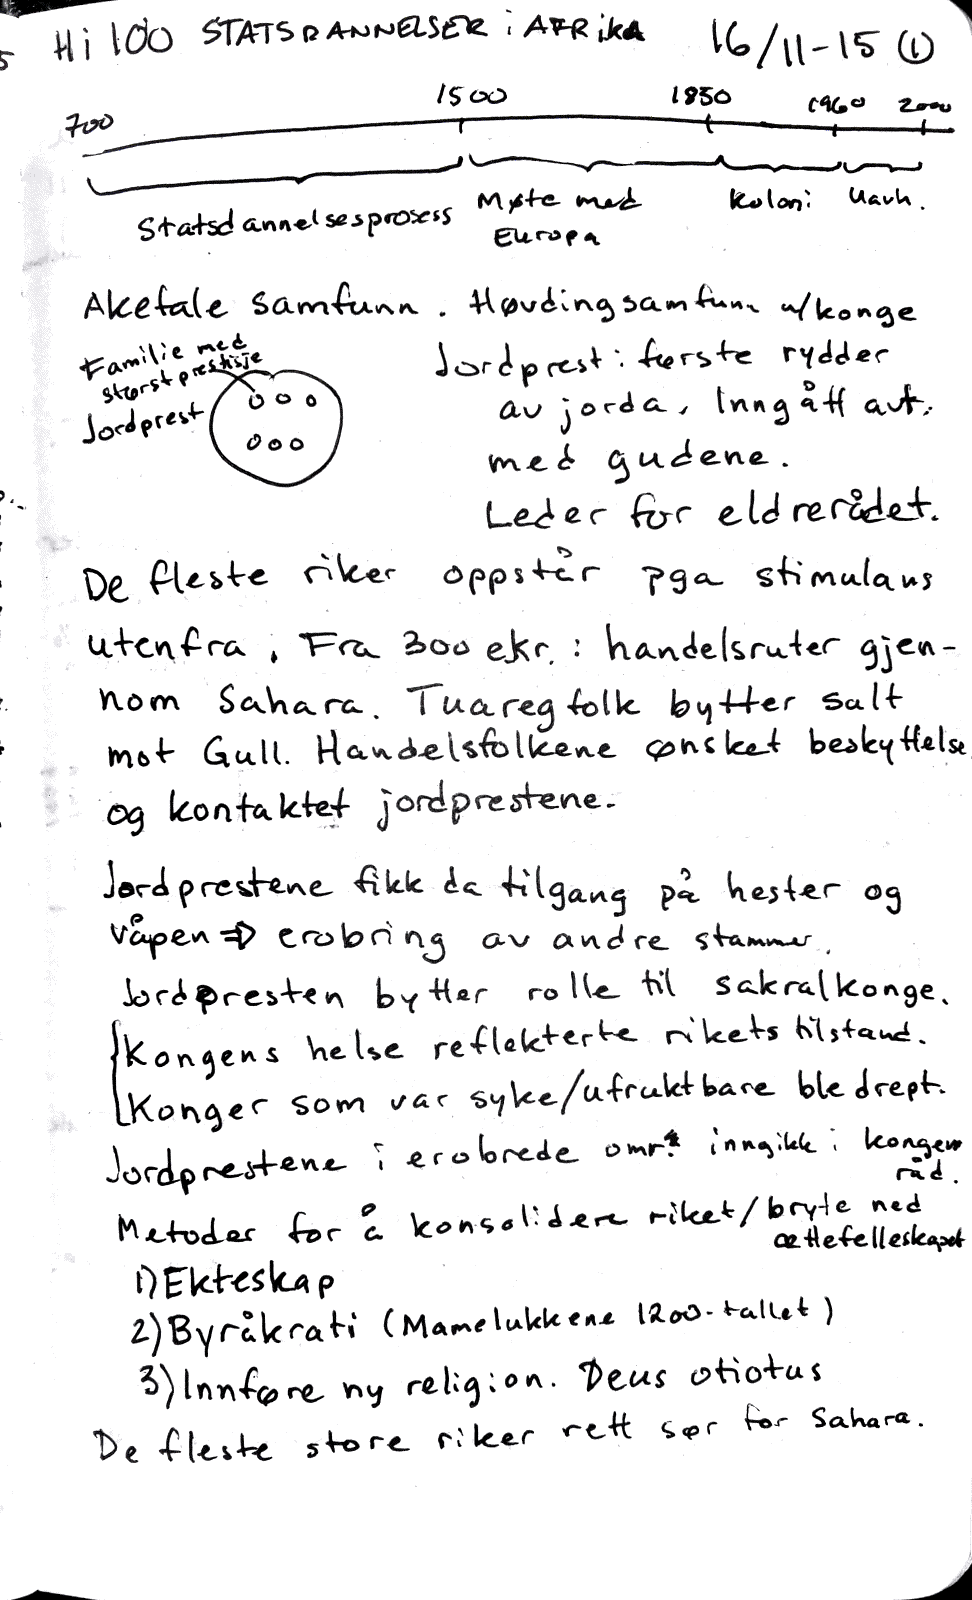 Hi 100 STATSDANNELSER i AFRikA 16/11-15 (1)
700 1500 1850 1960 2000
Statsdannelsesprosess Møte med Europa Koloni Uavh.
Akefale samfunn. Høvdingsamfunn u/konge
Familie med størst prestisje
Jordprest
Jordprest: første rydder
av jorda, Inngått avt.
med gudene.
Leder for eldrerådet.
De fleste riker oppstår pga stimulans
utenfra. Fra 300 ekr.: handelsruter gjen-
nom Sahara. Tuareg folk bytter salt
mot Gull. Handelsfolkene ønsket beskyttelse
og kontaktet jordprestene.
Jordprestene fikk da tilgang på hester og
våpen ⇒ erobring av andre stammer.
Jordpresten bytter rolle til sakralkonge.
Kongens helse reflekterte rikets tilstand.
Konger som var syke/ufruktbare ble drept.
Jordprestene i erobrede omr. inngikk i kongens
råd.
Metoder for å konsolidere riket/bryte ned
ættefelleskapet
1) Ekteskap
2) Byråkrati (Mamelukkene 1200-tallet)
3) Innføre ny religion. Deus otiotus
De fleste store riker rett sør for Sahara.